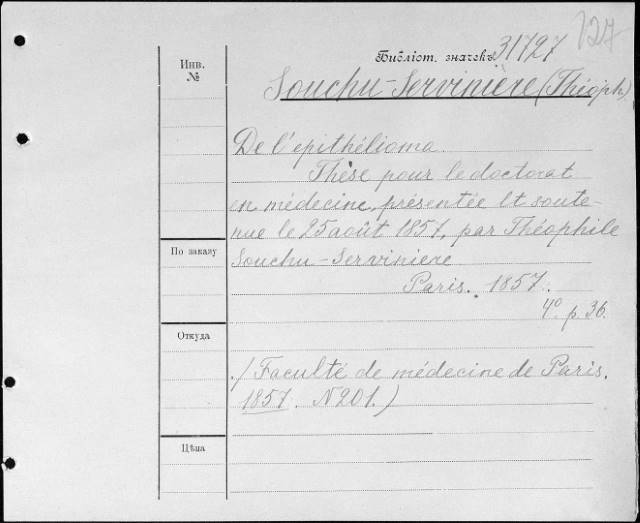 127
Библіот. значекъ 31727
Инв. №
Souchu-Servinière (Théoph.)
De l'epithélioma.
Thèse pour le doctorat
en médecine, présentée et soute-
nue le 25 août 1857, par Théophile
По заказу
Souchu-Serviniere
Paris. 1857.
4° p. 36.
Откуда
(Faculté de médecine de Paris.
1857. N 201.)
Цѣна